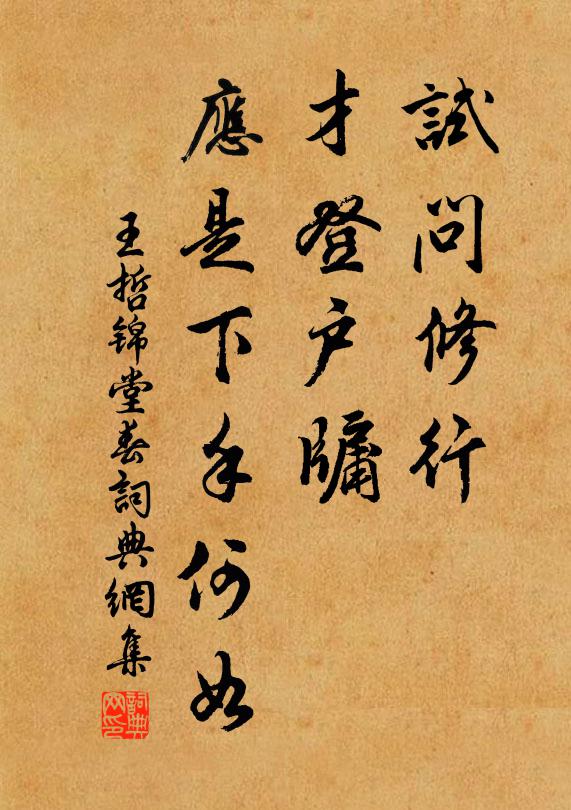 試問修行
才登户牖
應是下手何如
王哲锦堂春詞典網集
詞典网印